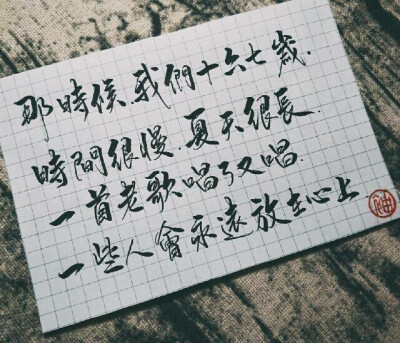 那時候、我們十六七歲.
時間很慢.夏天很長.
一首老歌唱了又唱.
一些人會永遠放在心上